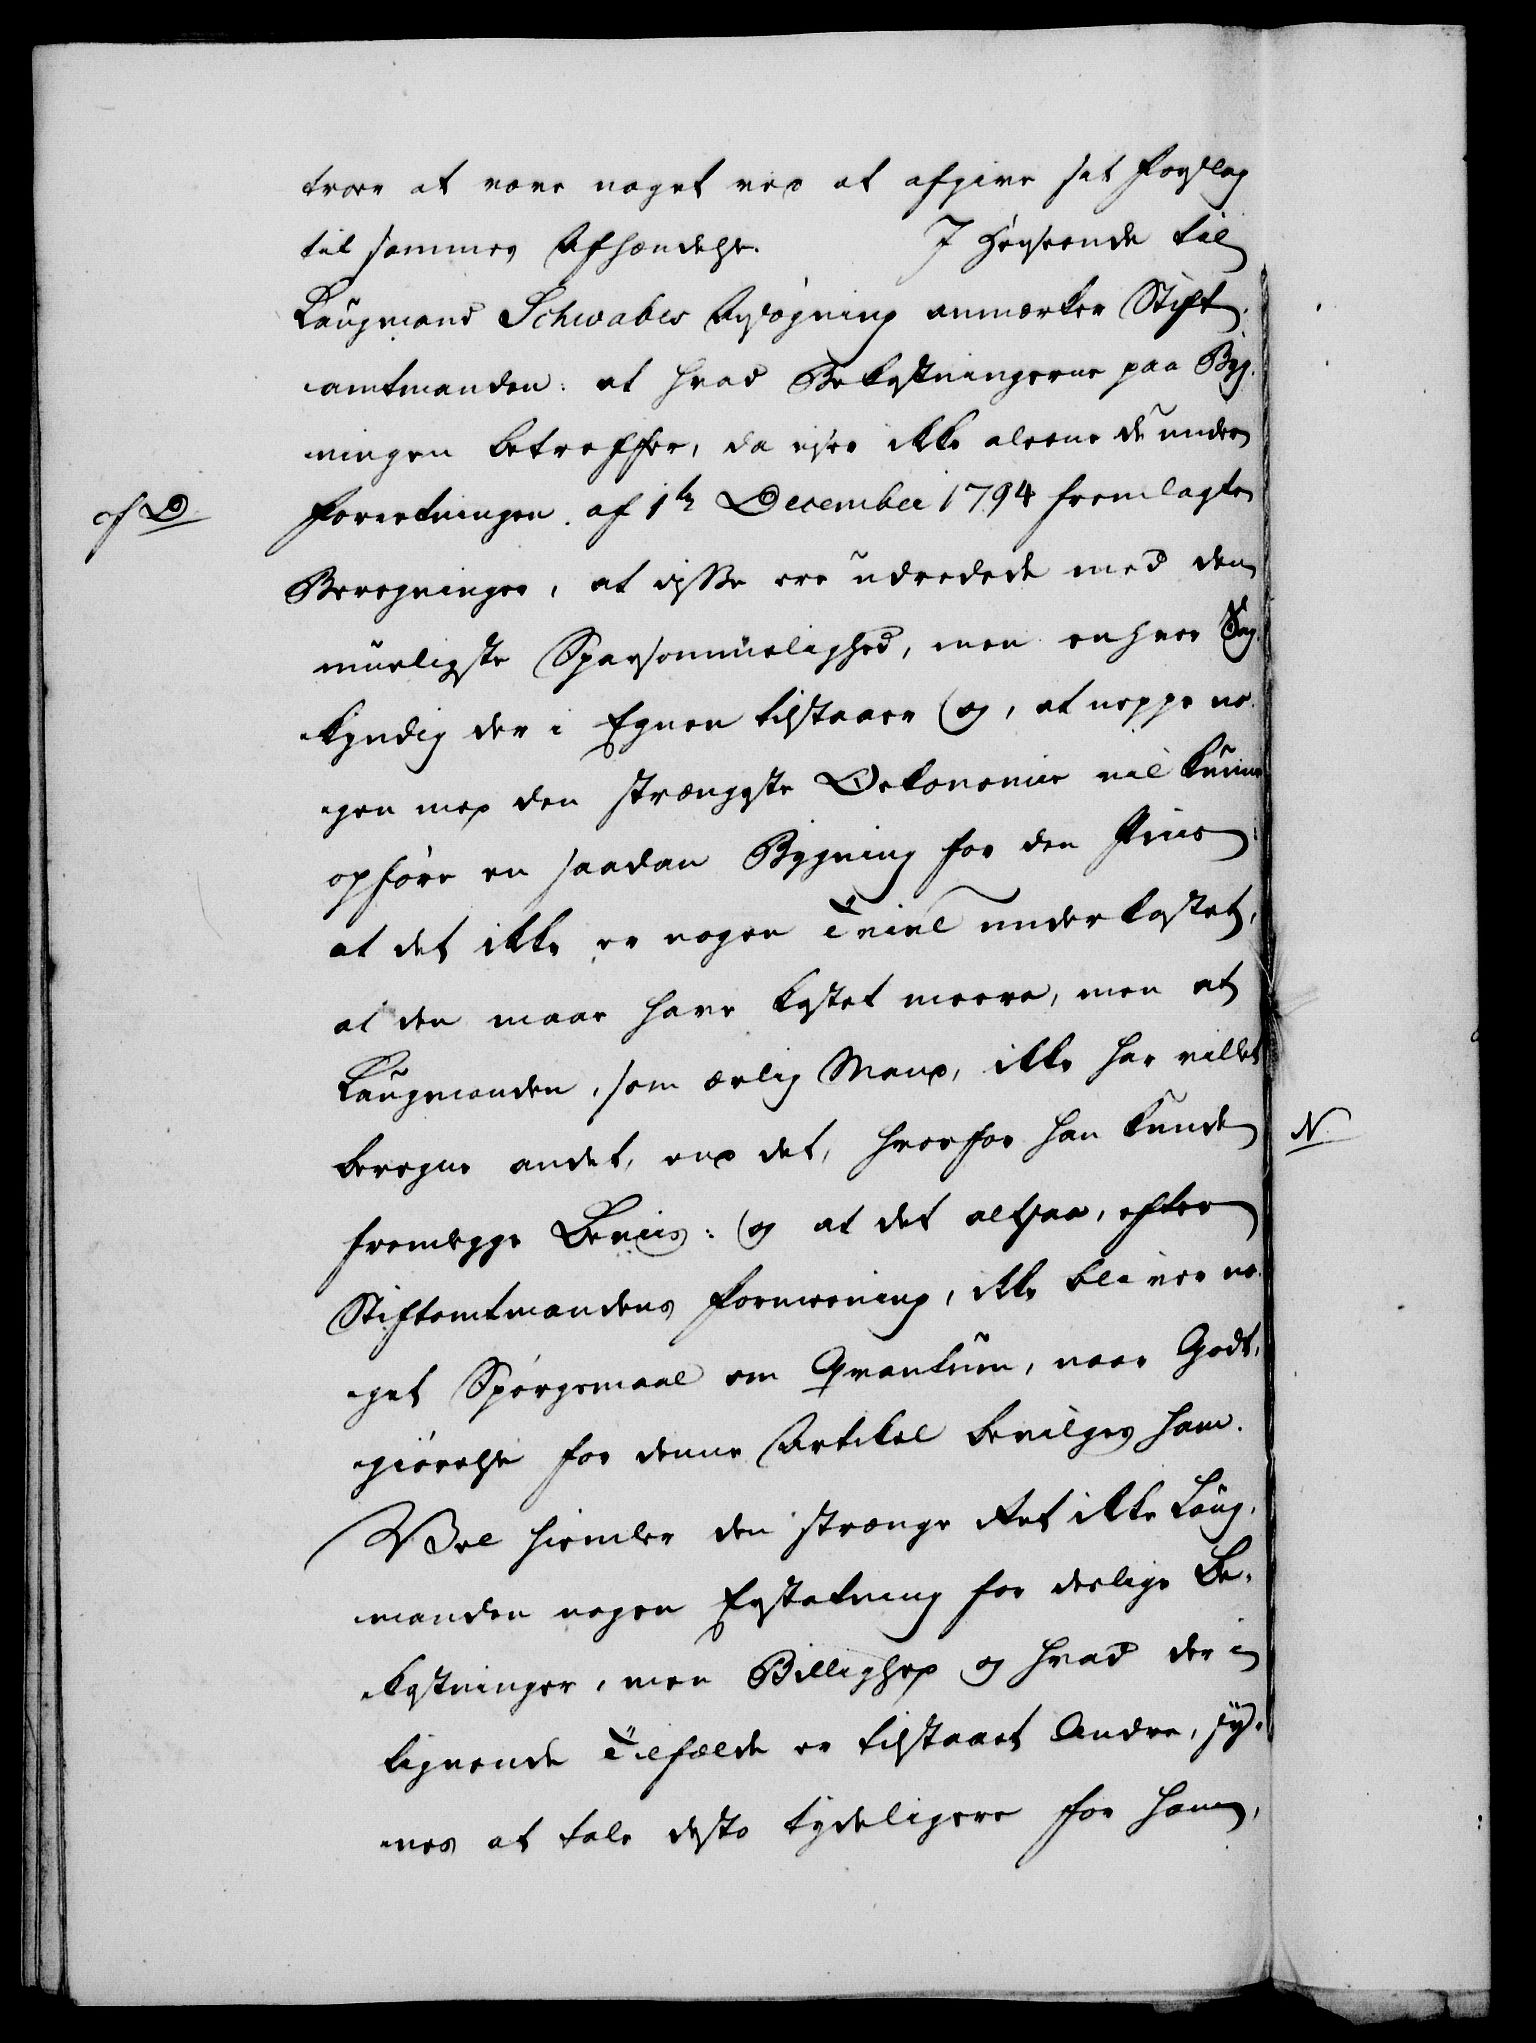 troer at være noget ved at afgive sit Forslag
til sammes Afhændelse. I Henseende til
Laugmand Schwabes Ansøgning anmærker Stift-
amtmanden: at hvad Bekostningerne paa Byg-
ningen betreffer, da viser ikke alleene de under
Forretningen af 1te December 1794 fremlagte
cfr D
Beregninger, at disse ere udredede med den
mueligste Sparsommelighed, men enhver Sag-
kyndig der i Egnen tilstaaer og, at neppe no-
gen med den strængeste Oekonomie vil kunne
opføre en saadan Bygning for den Priis:
at det ikke er nogen Tvivl underkastet,
at den maae have kostet meere, men at
Laugmanden, som ærlig Mand, ikke har villet
beregne andet, end det, hvorfor han kunde
N
fremlegge Beviis: og at det altsaa, efter
Stiftamtmandens Formeening, ikke bliver no-
get Spørgsmaal om Qvantum, naar Godt-
giørelse for denne Artikel bevilges ham.
Vel hiemler den strænge Ret ikke Laug-
manden nogen Erstatning for deslige Be-
kostninger, men Billighed og hvad der i
lignende Tilfælde er tilstaaet Andre, sy-
nes at tale desto tydeligere for ham,